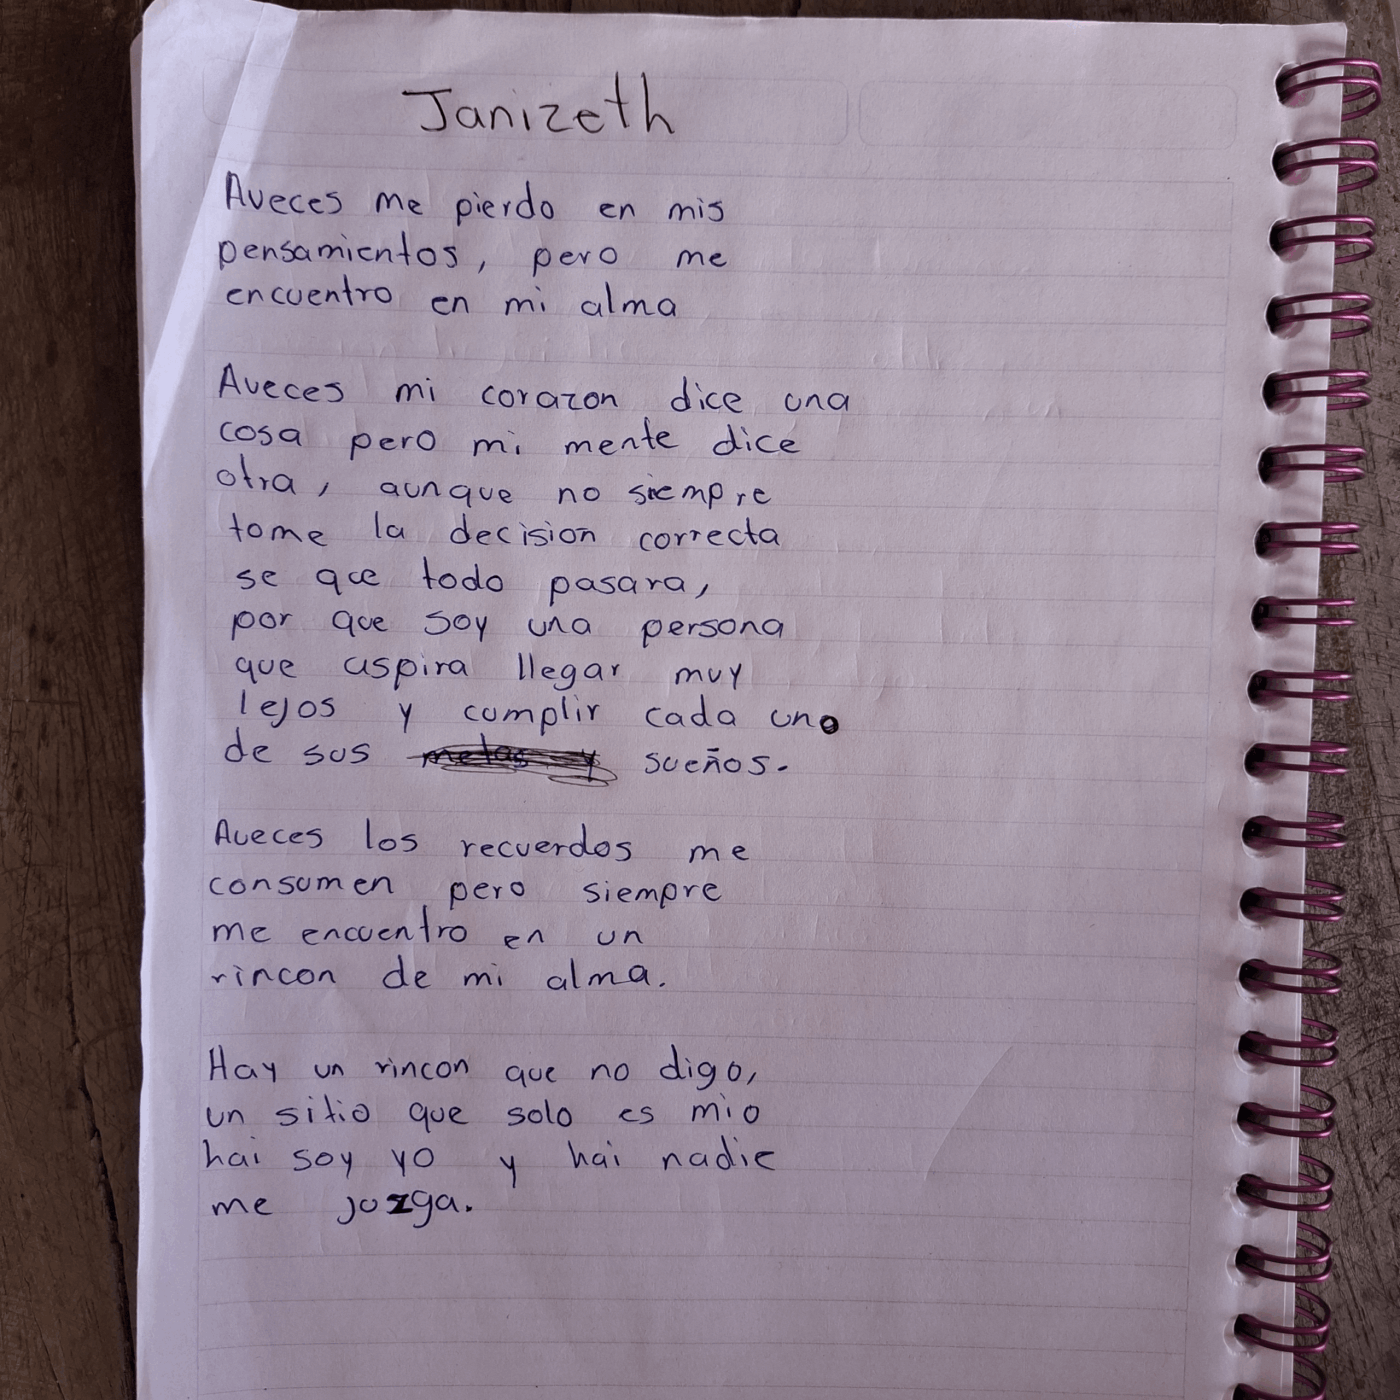 Janizeth
Aveces me pierdo en mis
pensamientos, pero me
encuentro en mi alma
Aveces mi corazon dice una
cosa pero mi mente dice
otra, aunque no siempre
tome la decision correcta
se que todo pasara,
por que soy una persona
que aspira llegar muy
lejos y cumplir cada uno
de sus metas y sueños.
Aveces los recuerdos me
consumen pero siempre
me encuentro en un
rincon de mi alma.
Hay un rincon que no digo,
un sitio que solo es mio
hai soy yo y hai nadie
me juzga.